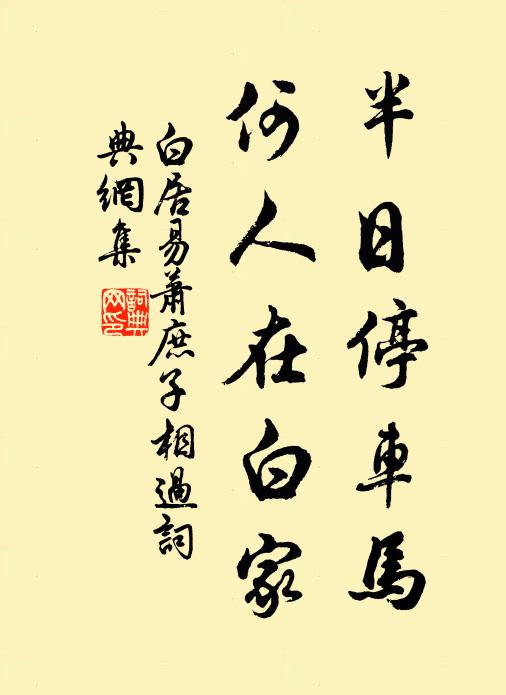 半日停車馬
何人在白家
白居易蕭庶子相過詞
典網集
詞典網印